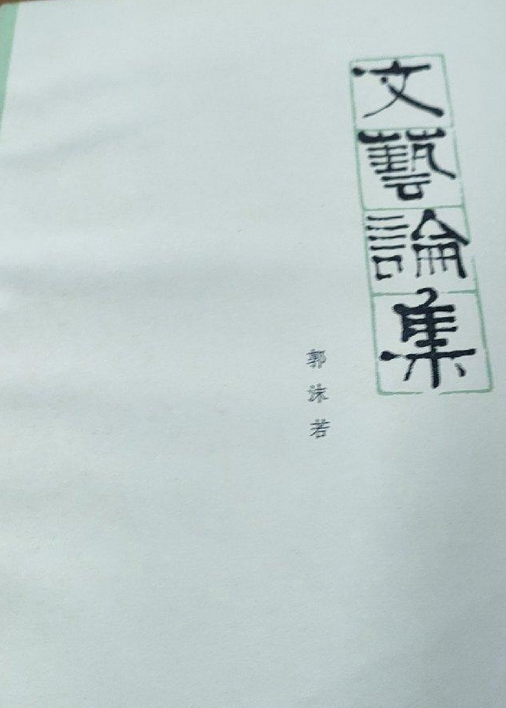 文藝論集
郭沫若